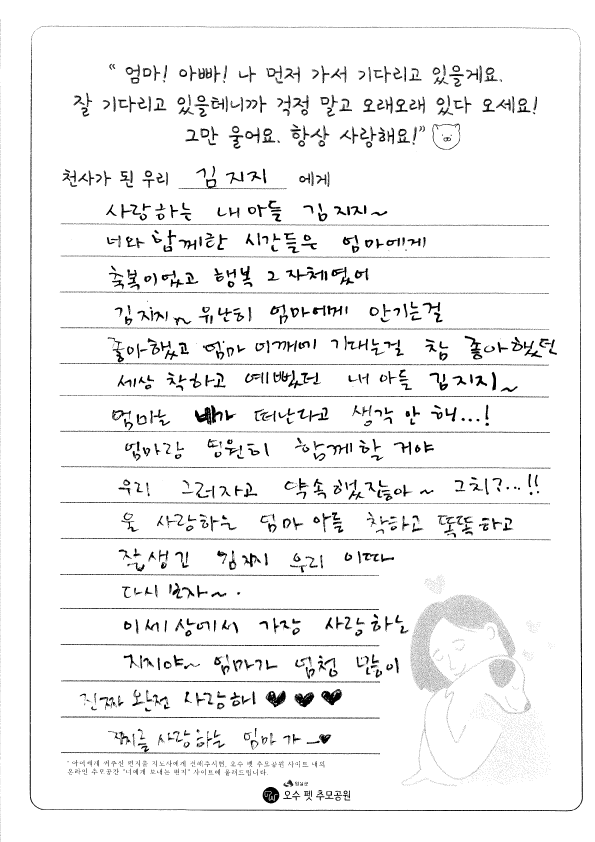 " 엄마! 아빠! 나 먼저 가서 기다리고 있을게요.
잘 기다리고 있을테니까 걱정 말고 오래오래 있다 오세요!
그만 울어요. 항상 사랑해요!"
천사가 된 우리 김지지 에게
사랑하는 내 아들 김지지~
너와 함께한 시간들은 엄마에게
축복이었고 행복 그 자체였어
김지지~ 유난히 엄마에게 안기는걸
좋아했고 엄마 어깨에 기대는걸 참 좋아했던
세상 착하고 예뻤던 내 아들 김지지~
엄마는 네가 떠난다고 생각 안 해...!
엄마랑 영원히 함께 할 거야
우리 그러자고 약속했잖아~ 그치?...!!
울 사랑하는 엄마 아들 착하고 똑똑하고
잘생긴 김지지 우리 이따
다시 보자~.
이 세상에서 가장 사랑하는
지지야~ 엄마가 엄청 많이
진짜 완전 사랑해 ♥ ♥ ♥
찌지를 사랑하는 엄마가 —♥
* 아이에게 써주신 편지를 지도사에게 전해주시면, 오수 펫 추모공원 사이트 내의
온라인 추모공간 "너에게 보내는 편지" 사이트에 올려드립니다.
임실군
오수 펫 추모공원